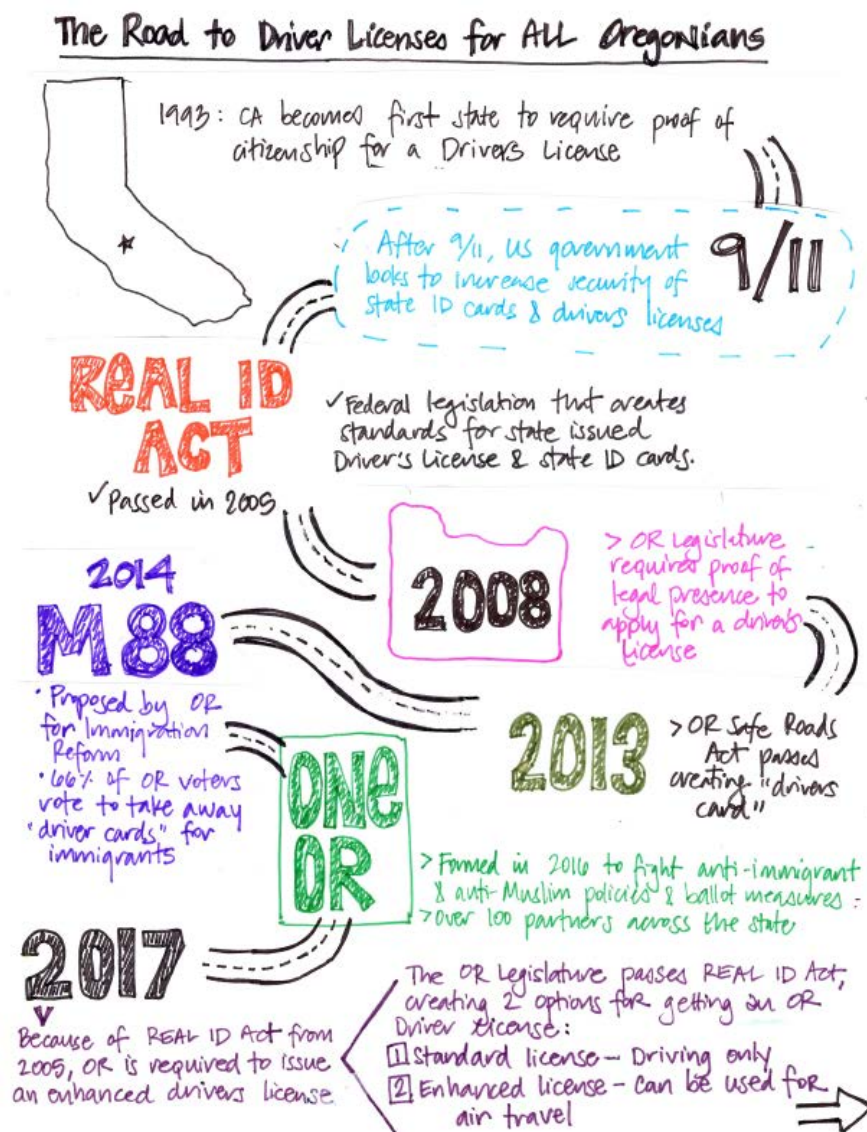 The Road to Driver Licenses for ALL Oregonians
1993: CA becomes first state to require proof of
citizenship for a Drivers License
9/11
After 9/11, US government
looks to increase security of
state ID cards & drivers licenses
REAL ID
ACT
✓ Passed in 2005
✓ Federal legislation that creates
standards for state issued
Driver's License & state ID cards.
2008
> OR Legislature
requires proof of
legal presence to
apply for a driver's
license
2013
> OR Safe Roads
Act passes
creating "drivers
card"
2014
M 88
• Proposed by OR
for Immigration
Reform
• 66% of OR voters
vote to take away
"driver cards" for
immigrants
ONE
OR
> Formed in 2016 to fight anti-immigrant
& anti-Muslim policies & ballot measures.
> Over 100 partners across the state
2017
Because of REAL ID Act from
2005, OR is required to issue
an enhanced drivers license
The OR Legislature passes REAL ID Act,
creating 2 options for getting an OR
Driver License:
1 Standard license - Driving only
2. Enhanced license - Can be used for
air travel